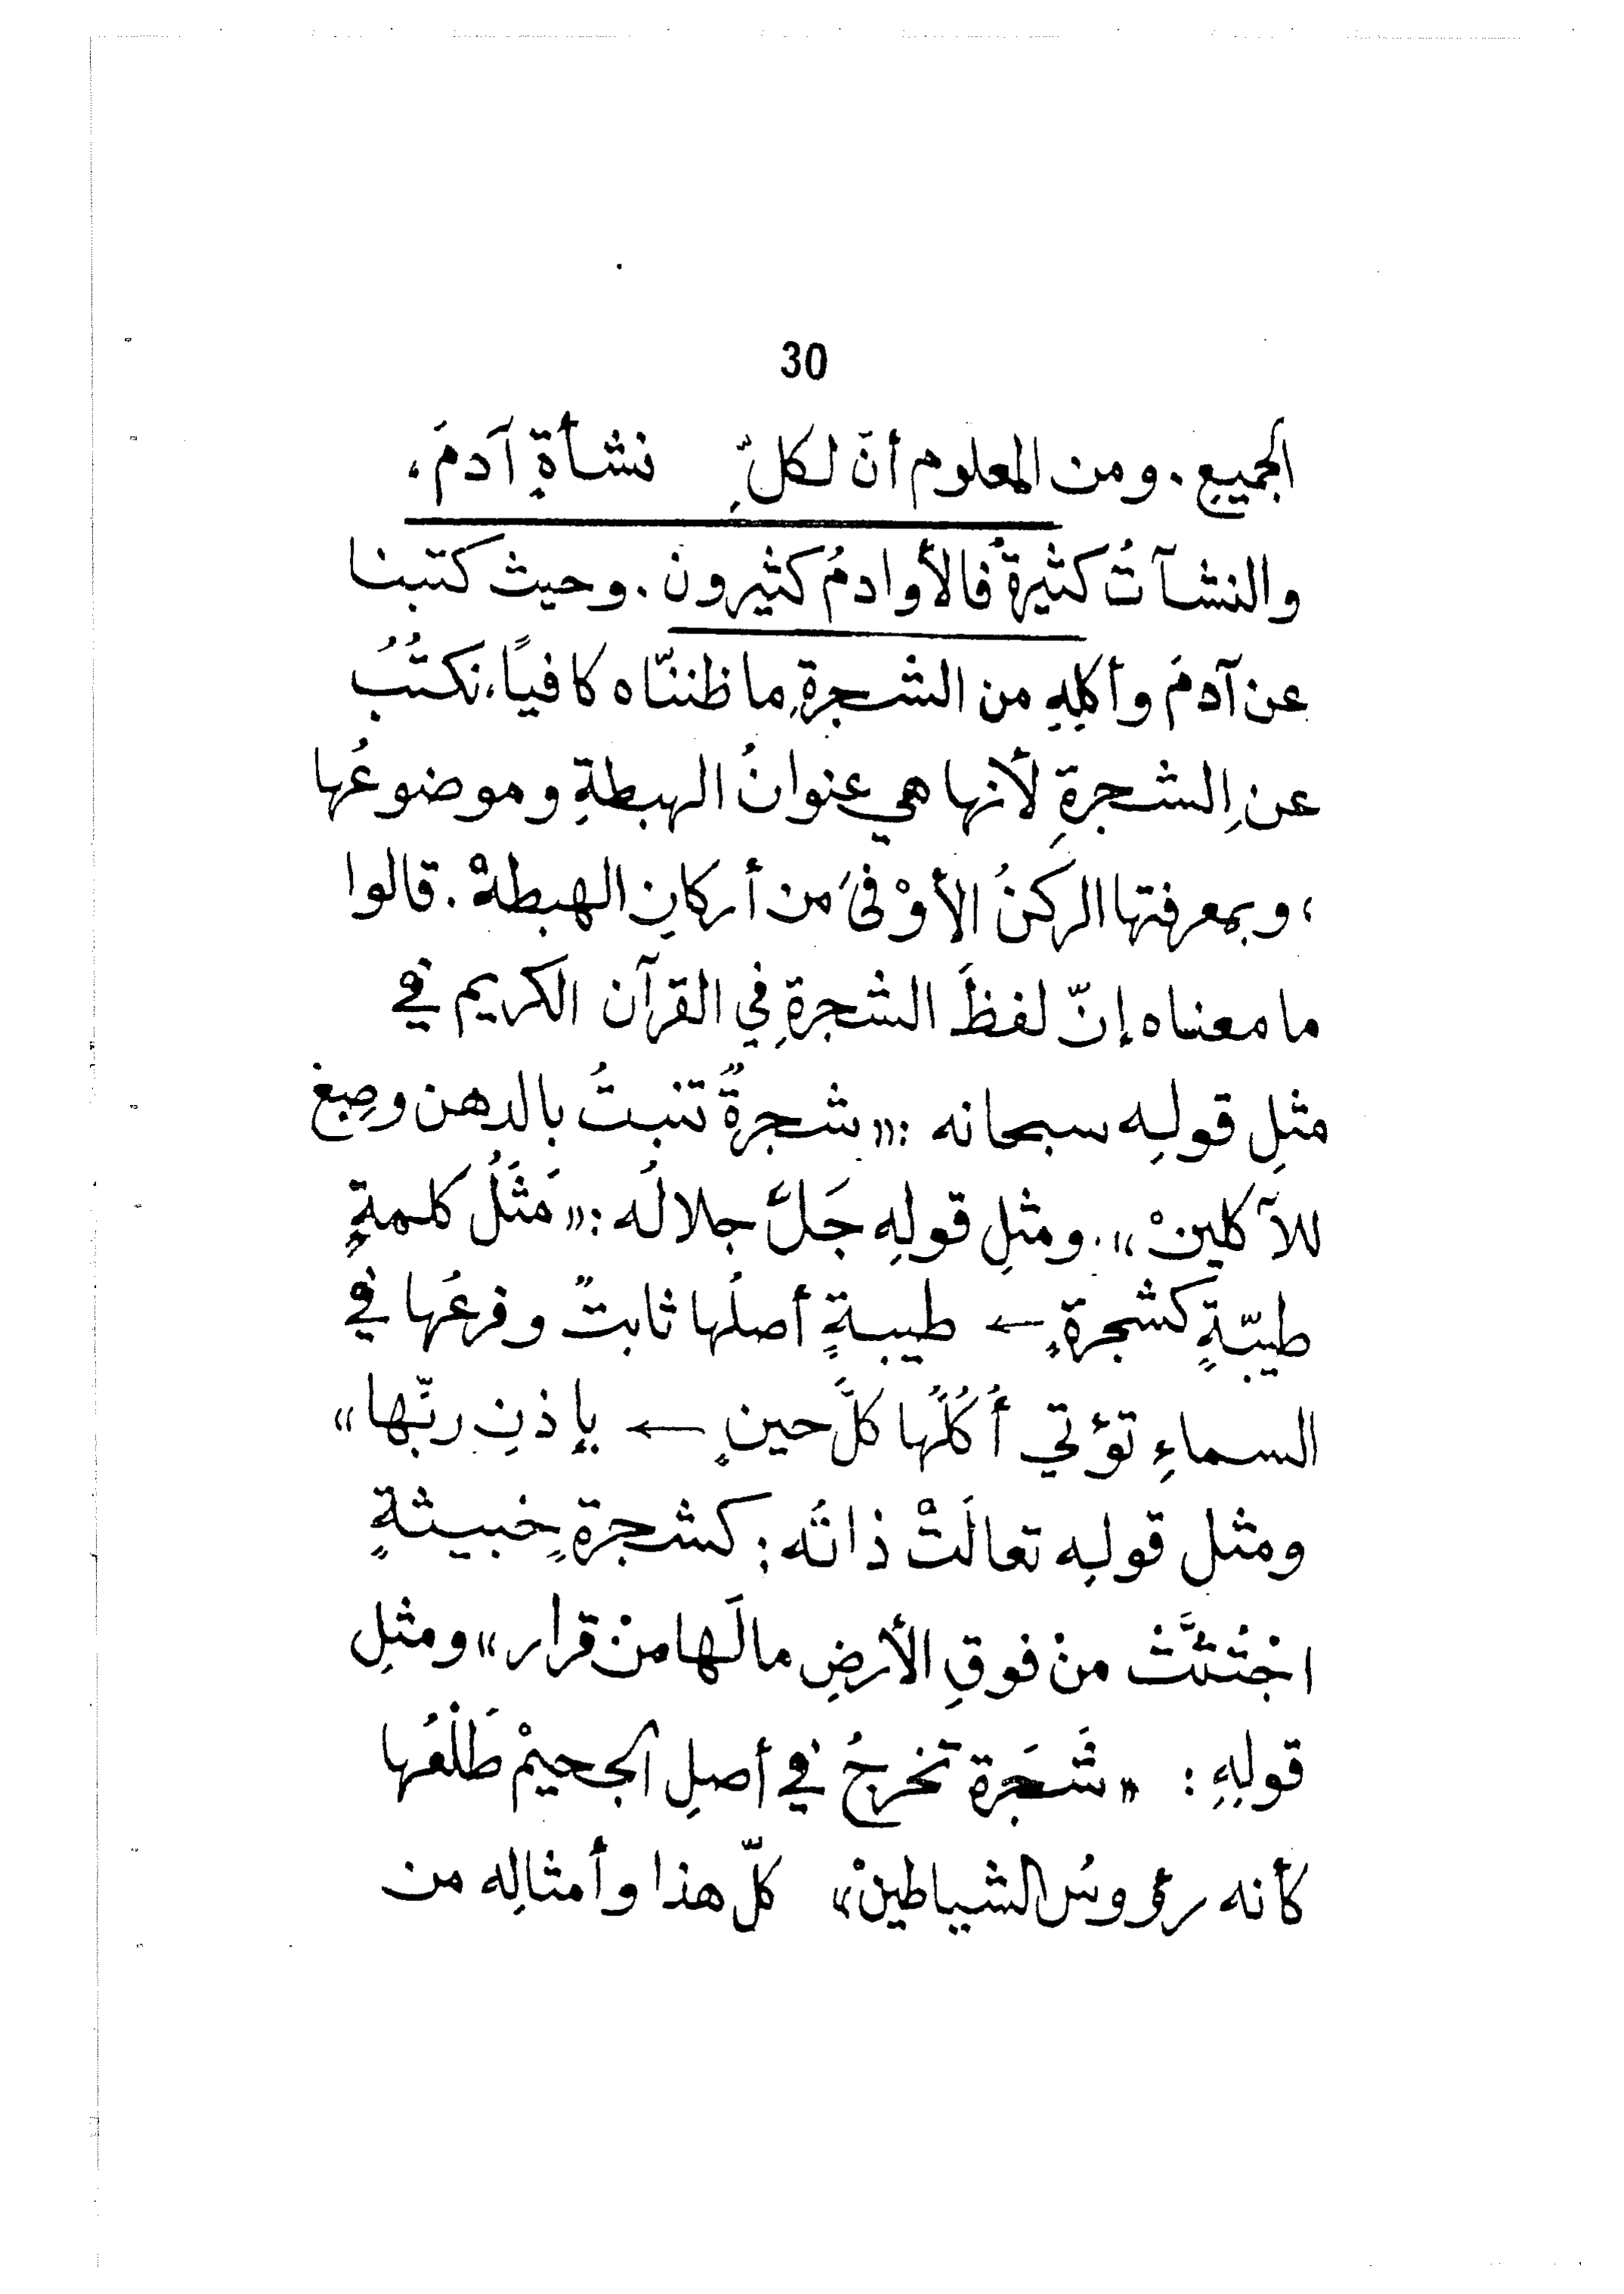 30
الجميعِ. ومن المعلوم أنّ لكلِّ نشأةٍ آدمَ،
والنشآتُ كثيرةٌ فالأوادمُ كثيرون. وحيث كتبنا
عن آدمَ وأكلِهِ من الشجرةِ ما ظننّاه كافياً، نكتُبُ
عنِ الشجرةِ لأنها هي عنوانُ الهبطةِ وموضوعُها
؛ وبمعرفتها الركنُ الأوْفىَ من أركانِ الهبطةْ. قالوا
ما معناه إنّ لفظَ الشجرةِ في القرآن الكريم في
مثلِ قولِه سبحانه: «شجرةٌ تنبتُ بالدهن وصِبغ
للآكلينْ». ومثلِ قولِه جَلَّ جلالُه: «مَثَلُ كلمةٍ
طيبّةٍ كشجرةٍ ← طيبةٍ أصلُها ثابتٌ وفرعُها في
السماءِ تؤتي أُكُلُها كلَّ حينٍ ← بإذنِ ربّها»
ومثل قولِه تعالَتْ ذاتُه: كشجرةٍ خبيثةٍ
اجْتُثَّتْ منْ فوقِ الأرضِ مالَها منْ قرار» ومثلِ
قولِهِ: «شَجَرة تخرجُ في أصلِ الجحيمْ طَلْعُها
كأنه رؤوسُ الشياطينْ» كلّ هذا وأمثالِه من